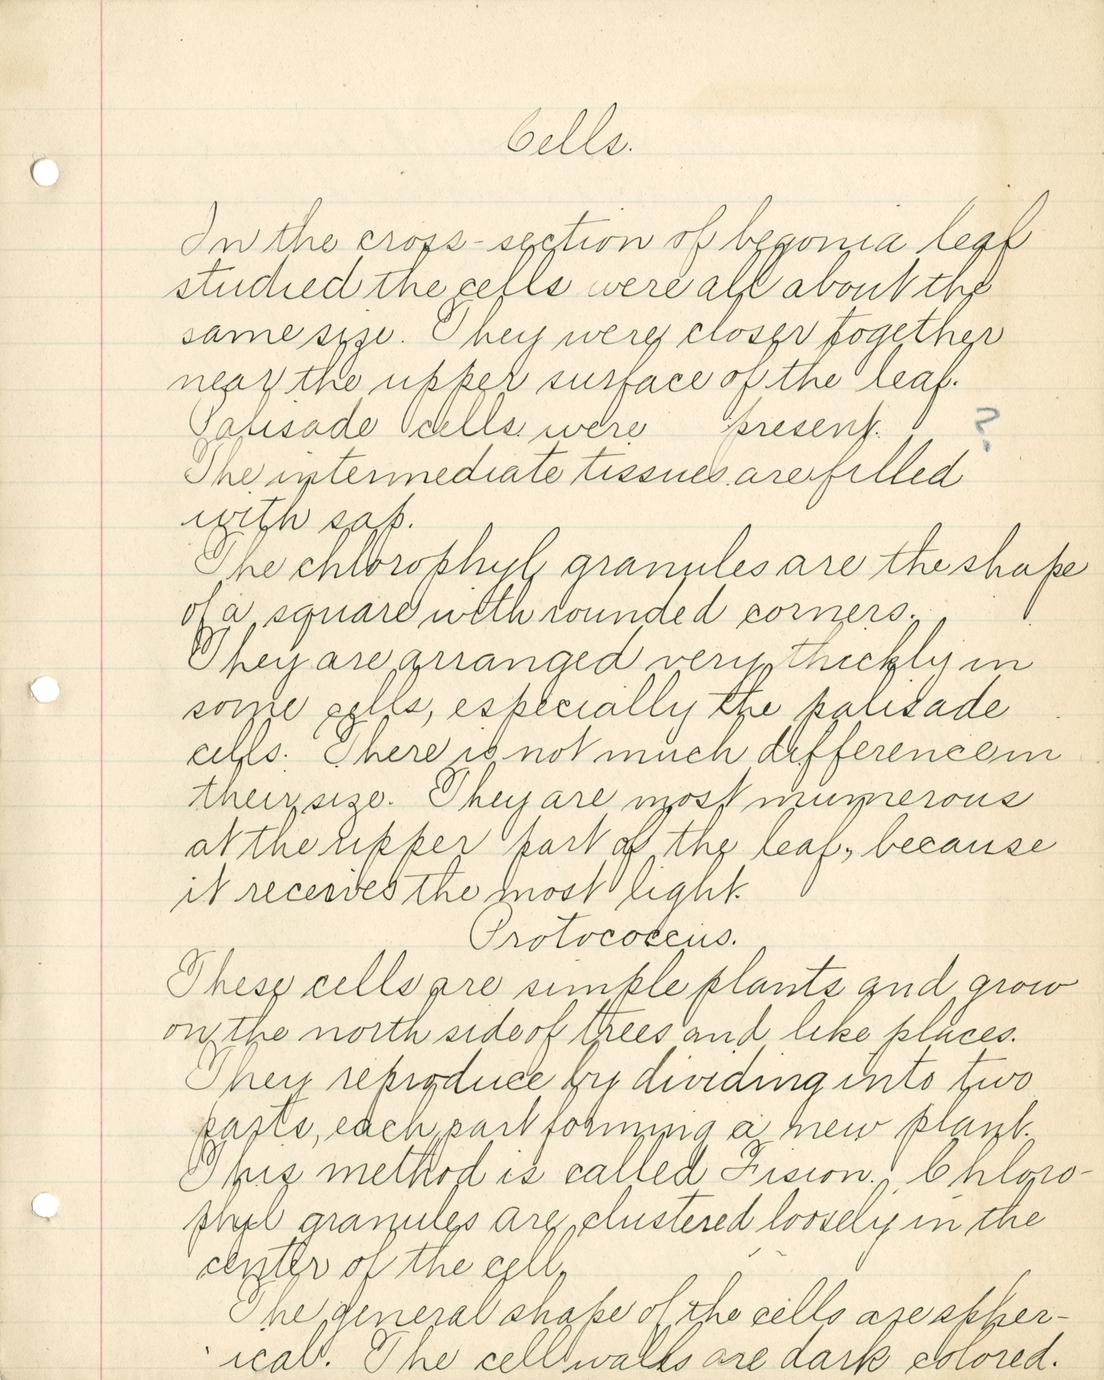 Cells.
In the cross-section of begonia leaf
studied the cells were all about the
same size. They were closer together
near the upper surface of the leaf.
Palisade cells were present. ?
The intermediate tissues are filled
with sap.
The chlorophyl granules are the shape
of a square with rounded corners.
They are arranged very thickly in
some cells, especially the palisade
cells. There is not much difference in
their size. They are most numerous
at the upper part of the leaf, because
it receives the most light.
Protococcus.
These cells are simple plants and grow
on the north side of trees and like places.
They reproduce by dividing into two
parts, each part forming a new plant.
This method is called Fision. Chloro-
phyl granules are clustered loosely in the
center of the cell.
The general shape of the cells are spher-
ical. The cell walls are dark colored.